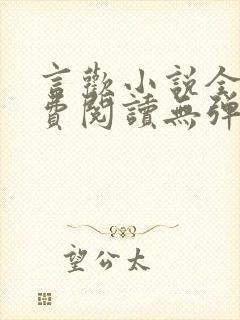 言歡小說全
費閱讀無彈
望公太